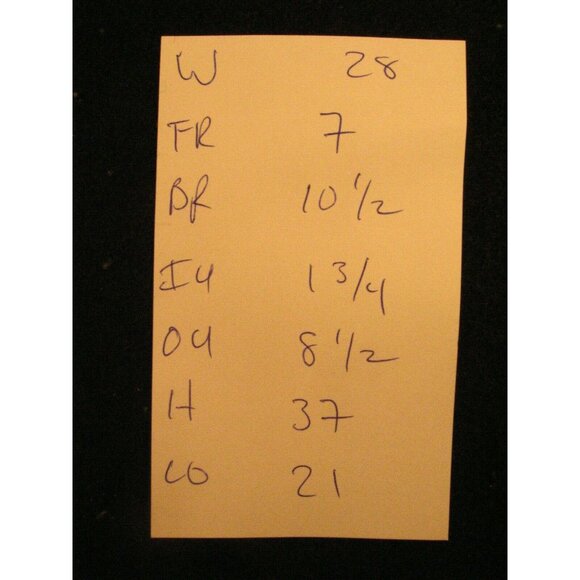 W 28
FR 7
BR 10 1/2
I4 1 3/4
O4 8 1/2
H 37
LO 21